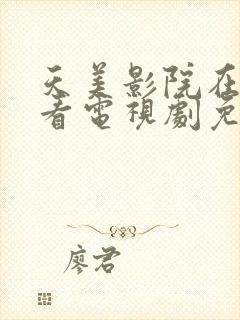 天美影院在
看電視劇免
廖君